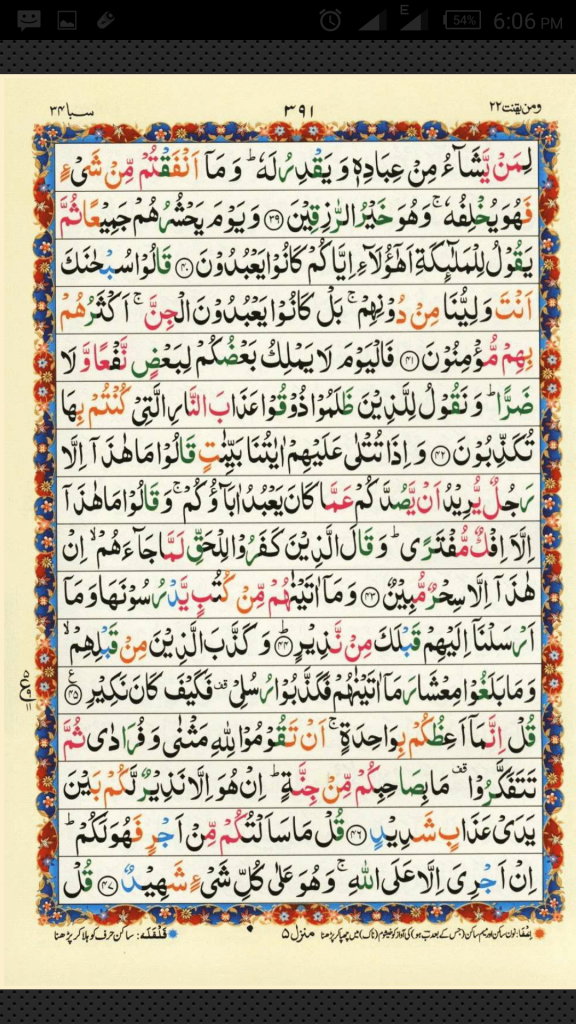 E
54%
6:06 PM
ومن یقنت ۲۲
۳۹۱
سبا ۳۴
لِمَنۡ یَّشَآءُ مِنۡ عِبَادِهٖ وَ یَقۡدِرُ لَهٗ ؕ وَ مَاۤ اَنۡفَقۡتُمۡ مِّنۡ شَیۡءٍ
فَهُوَ یُخۡلِفُهٗ ۚ وَهُوَ خَیۡرُ الرّٰزِقِیۡنَ ﴿۳۹﴾ وَ یَوۡمَ یَحۡشُرُهُمۡ جَمِیۡعًا ثُمَّ
یَقُوۡلُ لِلۡمَلٰٓئِکَةِ اَهٰۤؤُلَآءِ اِیَّاکُمۡ کَانُوۡا یَعۡبُدُوۡنَ ﴿۴۰﴾ قَالُوۡا سُبۡحٰنَکَ
اَنۡتَ وَلِیُّنَا مِنۡ دُوۡنِهِمۡ ۚ بَلۡ کَانُوۡا یَعۡبُدُوۡنَ الۡجِنَّ ۚ اَکۡثَرُهُمۡ
بِهِمۡ مُّؤۡمِنُوۡنَ ﴿۴۱﴾ فَالۡیَوۡمَ لَا یَمۡلِکُ بَعۡضُکُمۡ لِبَعۡضٍ نَّفۡعًا وَّ لَا
ضَرًّا ؕ وَ نَقُوۡلُ لِلَّذِیۡنَ ظَلَمُوۡا ذُوۡقُوۡا عَذَابَ النَّارِ الَّتِیۡ کُنۡتُمۡ بِهَا
تُکَذِّبُوۡنَ ﴿۴۲﴾ وَ اِذَا تُتۡلٰی عَلَیۡهِمۡ اٰیٰتُنَا بَیِّنٰتٍ قَالُوۡا مَا هٰذَاۤ اِلَّا
رَجُلٌ یُّرِیۡدُ اَنۡ یَّصُدَّکُمۡ عَمَّا کَانَ یَعۡبُدُ اٰبَآؤُکُمۡ ۚ وَ قَالُوۡا مَا هٰذَاۤ
اِلَّاۤ اِفۡکٌ مُّفۡتَرًی ؕ وَ قَالَ الَّذِیۡنَ کَفَرُوۡا لِلۡحَقِّ لَمَّا جَآءَهُمۡ ۙ اِنۡ
هٰذَاۤ اِلَّا سِحۡرٌ مُّبِیۡنٌ ﴿۴۳﴾ وَ مَاۤ اٰتَیۡنٰهُمۡ مِّنۡ کُتُبٍ یَّدۡرُسُوۡنَهَا وَ مَاۤ
اَرۡسَلۡنَاۤ اِلَیۡهِمۡ قَبۡلَکَ مِنۡ نَّذِیۡرٍ ﴿ؕ۴۴﴾ وَ کَذَّبَ الَّذِیۡنَ مِنۡ قَبۡلِهِمۡ ۙ
وَ مَا بَلَغُوۡا مِعۡشَارَ مَاۤ اٰتَیۡنٰهُمۡ فَکَذَّبُوۡا رُسُلِیۡ ۟ فَکَیۡفَ کَانَ نَکِیۡرِ ﴿٪۴۵﴾
قُلۡ اِنَّمَاۤ اَعِظُکُمۡ بِوَاحِدَةٍ ۚ اَنۡ تَقُوۡمُوۡا لِلّٰهِ مَثۡنٰی وَ فُرَادٰی ثُمَّ
تَتَفَکَّرُوۡا ۟ مَا بِصَاحِبِکُمۡ مِّنۡ جِنَّةٍ ؕ اِنۡ هُوَ اِلَّا نَذِیۡرٌ لَّکُمۡ بَیۡنَ
یَدَیۡ عَذَابٍ شَدِیۡدٍ ﴿۴۶﴾ قُلۡ مَا سَاَلۡتُکُمۡ مِّنۡ اَجۡرٍ فَهُوَ لَکُمۡ ؕ
اِنۡ اَجۡرِیَ اِلَّا عَلَی اللّٰهِ ۚ وَ هُوَ عَلٰی کُلِّ شَیۡءٍ شَهِیۡدٌ ﴿۴۷﴾ قُلۡ
اِخفَا: نون ساکن اور میم ساکن (جس کے بعد ب ہو) کی آواز کو خیشوم (ناک) میں چھپا کر پڑھنا
منزل ۵
قَلْقَلَہ: ساکن حرف کو ہلا کر پڑھنا